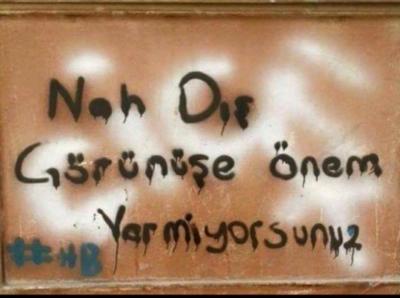 Nah Dış
Görünüşe önem
Vermiyorsunuz
##HB